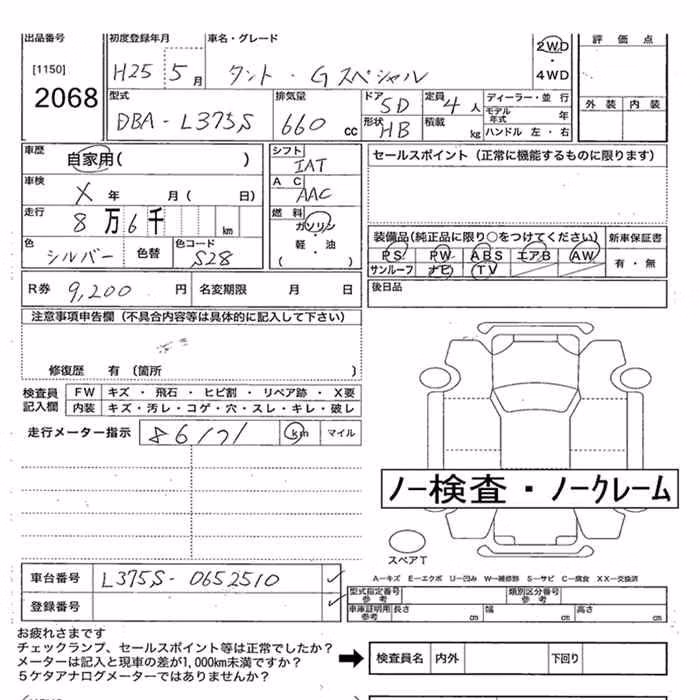 出品番号 初度登録年月 車名・グレード 2WD 評価点
[1150] H25 5月 タント・Gスペシャル ・ 4WD
2068 型式 排気量 ドア 5D 定員 4人 ディーラー・並行 外装 内装
DBA-L375S 660cc 形状 HB 積載 kg モデル年式 年
ハンドル 左・右
車歴 自家用( ) シフト IAT セールスポイント(正常に機能するものに限ります)
車検 X年 月( 日) AC AAC
走行 8万6千 km 燃料 ガソリン・軽・油 ( ) 装備品(純正品に限り○をつけてください) 新車保証書
色 シルバー 色替 色コード S28 PS PW ABS エアB AW 有・無
サンルーフ ナビ TV
R券 9,200円 名変期限 月 日 後日品
注意事項申告欄(不具合内容等は具体的に記入して下さい)
修復歴 有 〔箇所 〕
検査員記入欄 FW キズ・飛石・ヒビ割・リペア跡・X要
内装 キズ・汚レ・コゲ・穴・スレ・キレ・破レ
走行メーター指示 86171 km マイル
ノー検査・ノークレーム
スペアT
車台番号 L375S-0652510
A−キズ E−エクボ U−凹み W−補修跡 S−サビ C−腐食 XX−交換済
登録番号 型式指定番号 参考 類別区分番号 参考
車庫証明用 参考 長さ cm 幅 cm 高さ cm
お疲れさまです
チェックランプ、セールスポイント等は正常でしたか?
メーターは記入と現車の差が1,000km未満ですか? 検査員名 内外 下回り
5ケタアナログメーターではありませんか?